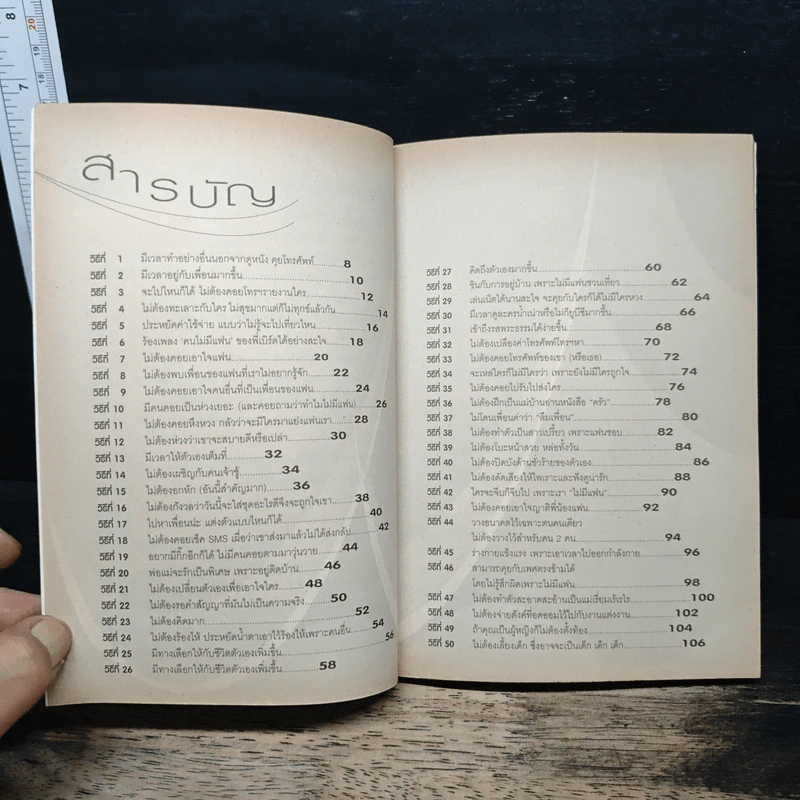 สารบัญ
วิธีที่ 1 มีเวลาทำอย่างอื่นนอกจากดูหนัง คุยโทรศัพท์............8
วิธีที่ 2 มีเวลาอยู่กับเพื่อนมากขึ้น............10
วิธีที่ 3 จะไปไหนก็ได้ ไม่ต้องคอยโทรฯรายงานใคร............12
วิธีที่ 4 ไม่ต้องทะเลาะกับใคร ไม่สุขมากแต่ก็ไม่ทุกข์แล้วกัน............14
วิธีที่ 5 ประหยัดค่าใช้จ่าย แบบว่าไม่รู้จะไปเที่ยวไหน............16
วิธีที่ 6 ร้องเพลง 'คนไม่มีแฟน' ของพี่เบิร์ดได้อย่างสะใจ............18
วิธีที่ 7 ไม่ต้องคอยเอาใจแฟน............20
วิธีที่ 8 ไม่ต้องพบเพื่อนของแฟนที่เราไม่อยากรู้จัก............22
วิธีที่ 9 ไม่ต้องคอยเอาใจคนอื่นที่เป็นเพื่อนของแฟน............24
วิธีที่ 10 มีคนคอยเป็นห่วงเยอะ (และคอยถามว่าทำไมไม่มีแฟน)............26
วิธีที่ 11 ไม่ต้องคอยหึงหวง กลัวว่าจะมีใครมาแย่งแฟนเรา............28
วิธีที่ 12 ไม่ต้องห่วงว่าเขาจะสบายดีหรือเปล่า............30
วิธีที่ 13 มีเวลาให้ตัวเองเต็มที่............32
วิธีที่ 14 ไม่ต้องเผชิญกับคนเจ้าชู้............34
วิธีที่ 15 ไม่ต้องอกหัก (อันนี้สำคัญมาก)............36
วิธีที่ 16 ไม่ต้องกังวลว่าวันนี้จะใส่ชุดอะไรดีจึงจะถูกใจเขา............38
วิธีที่ 17 ไปหาเพื่อนน่ะ แต่งตัวแบบไหนก็ได้............40
วิธีที่ 18 ไม่ต้องคอยเช็ค SMS เผื่อว่าเขาส่งมาแล้วไม่ได้ส่งกลับ............42
วิธีที่ 19 อยากมีกิ๊กอีกก็ได้ ไม่มีคนคอยตามมาวุ่นวาย............44
วิธีที่ 20 พ่อแม่จะรักเป็นพิเศษ เพราะอยู่ติดบ้าน............46
วิธีที่ 21 ไม่ต้องเปลี่ยนตัวเองเพื่อเอาใจใคร............48
วิธีที่ 22 ไม่ต้องรอคำสัญญาที่มันไม่เป็นความจริง............50
วิธีที่ 23 ไม่ต้องคิดมาก............52
วิธีที่ 24 ไม่ต้องร้องไห้ ประหยัดน้ำตาเอาไว้ร้องไห้เพราะคนอื่น............54
วิธีที่ 25 มีทางเลือกให้กับชีวิตตัวเองเพิ่มขึ้น............56
วิธีที่ 26 มีทางเลือกให้กับชีวิตตัวเองเพิ่มขึ้น............58
วิธีที่ 27 คิดถึงตัวเองมากขึ้น............60
วิธีที่ 28 ชินกับการอยู่บ้าน เพราะไม่มีแฟนชวนเที่ยว............62
วิธีที่ 29 เล่นเน็ตได้นานสะใจ จะคุยกับใครก็ได้ไม่มีใครหวง............64
วิธีที่ 30 มีเวลาดูละครน้ำเน่าหรือไม่ก็ยูบีซีมากขึ้น............66
วิธีที่ 31 เข้าถึงรสพระธรรมได้ง่ายขึ้น............68
วิธีที่ 32 ไม่ต้องเปลืองค่าโทรศัพท์โทรหา............70
วิธีที่ 33 ไม่ต้องคอยโทรศัพท์ของเขา (หรือเธอ)............72
วิธีที่ 34 จะเหล่ใครก็ไม่มีใครว่า เพราะยังไม่มีใครถูกใจ............74
วิธีที่ 35 ไม่ต้องคอยไปรับไปส่งใคร............76
วิธีที่ 36 ไม่ต้องฝึกเป็นแม่บ้านอ่านหนังสือ "ครัว"............78
วิธีที่ 37 ไม่โดนเพื่อนด่าว่า "ลืมเพื่อน"............80
วิธีที่ 38 ไม่ต้องทำตัวเป็นสาวเปรี้ยว เพราะแฟนชอบ............82
วิธีที่ 39 ไม่ต้องโบะหน้าสวย หล่อทั้งวัน............84
วิธีที่ 40 ไม่ต้องปิดบังด้านชั่วร้ายของตัวเอง............86
วิธีที่ 41 ไม่ต้องดัดเสียงให้ไพเราะและฟังดูน่ารัก............88
วิธีที่ 42 ใครจะจีบก็จีบไป เพราะเรา "ไม่มีแฟน"............90
วิธีที่ 43 ไม่ต้องคอยเอาใจญาติพี่น้องแฟน............92
วิธีที่ 44 วางอนาคตไว้เฉพาะตนคนเดียว
ไม่ต้องวางไว้สำหรับคน 2 คน............94
วิธีที่ 45 ร่างกายแข็งแรง เพราะเอาเวลาไปออกกำลังกาย............96
วิธีที่ 46 สามารถคุยกับเพศตรงข้ามได้
โดยไม่รู้สึกผิดเพราะไม่มีแฟน............98
วิธีที่ 47 ไม่ต้องทำตัวสะอาดสะอ้านเป็นแม่เรียมเร้เรไร............100
วิธีที่ 48 ไม่ต้องจ่ายตังค์ที่อดออมไว้ไปกับงานแต่งงาน............102
วิธีที่ 49 ถ้าคุณเป็นผู้หญิงก็ไม่ต้องตั้งท้อง............104
วิธีที่ 50 ไม่ต้องเลี้ยงเด็ก ซึ่งอาจจะเป็นเด็ก เด็ก เด็ก............106
8
7
20
19
18